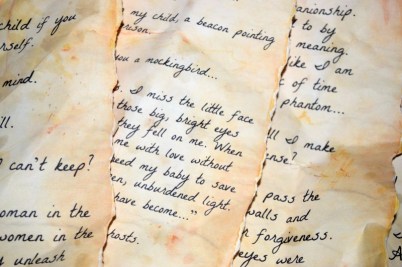 child if you
rself.
mind.
ll.
can't keep?
oman in the
women in the
unleash
my child, a beacon pointing
rison.
you a mockingbird...
I miss the little face
those big, bright eyes
they fell on me. When
me with love without
need my baby to save
en, unburdened light.
have become..."
hosts.
anionship.
to by
meaning.
like I am
of time
phantom...
ll I make
ense?
pass the
walls and
forgiveness.
eyes were